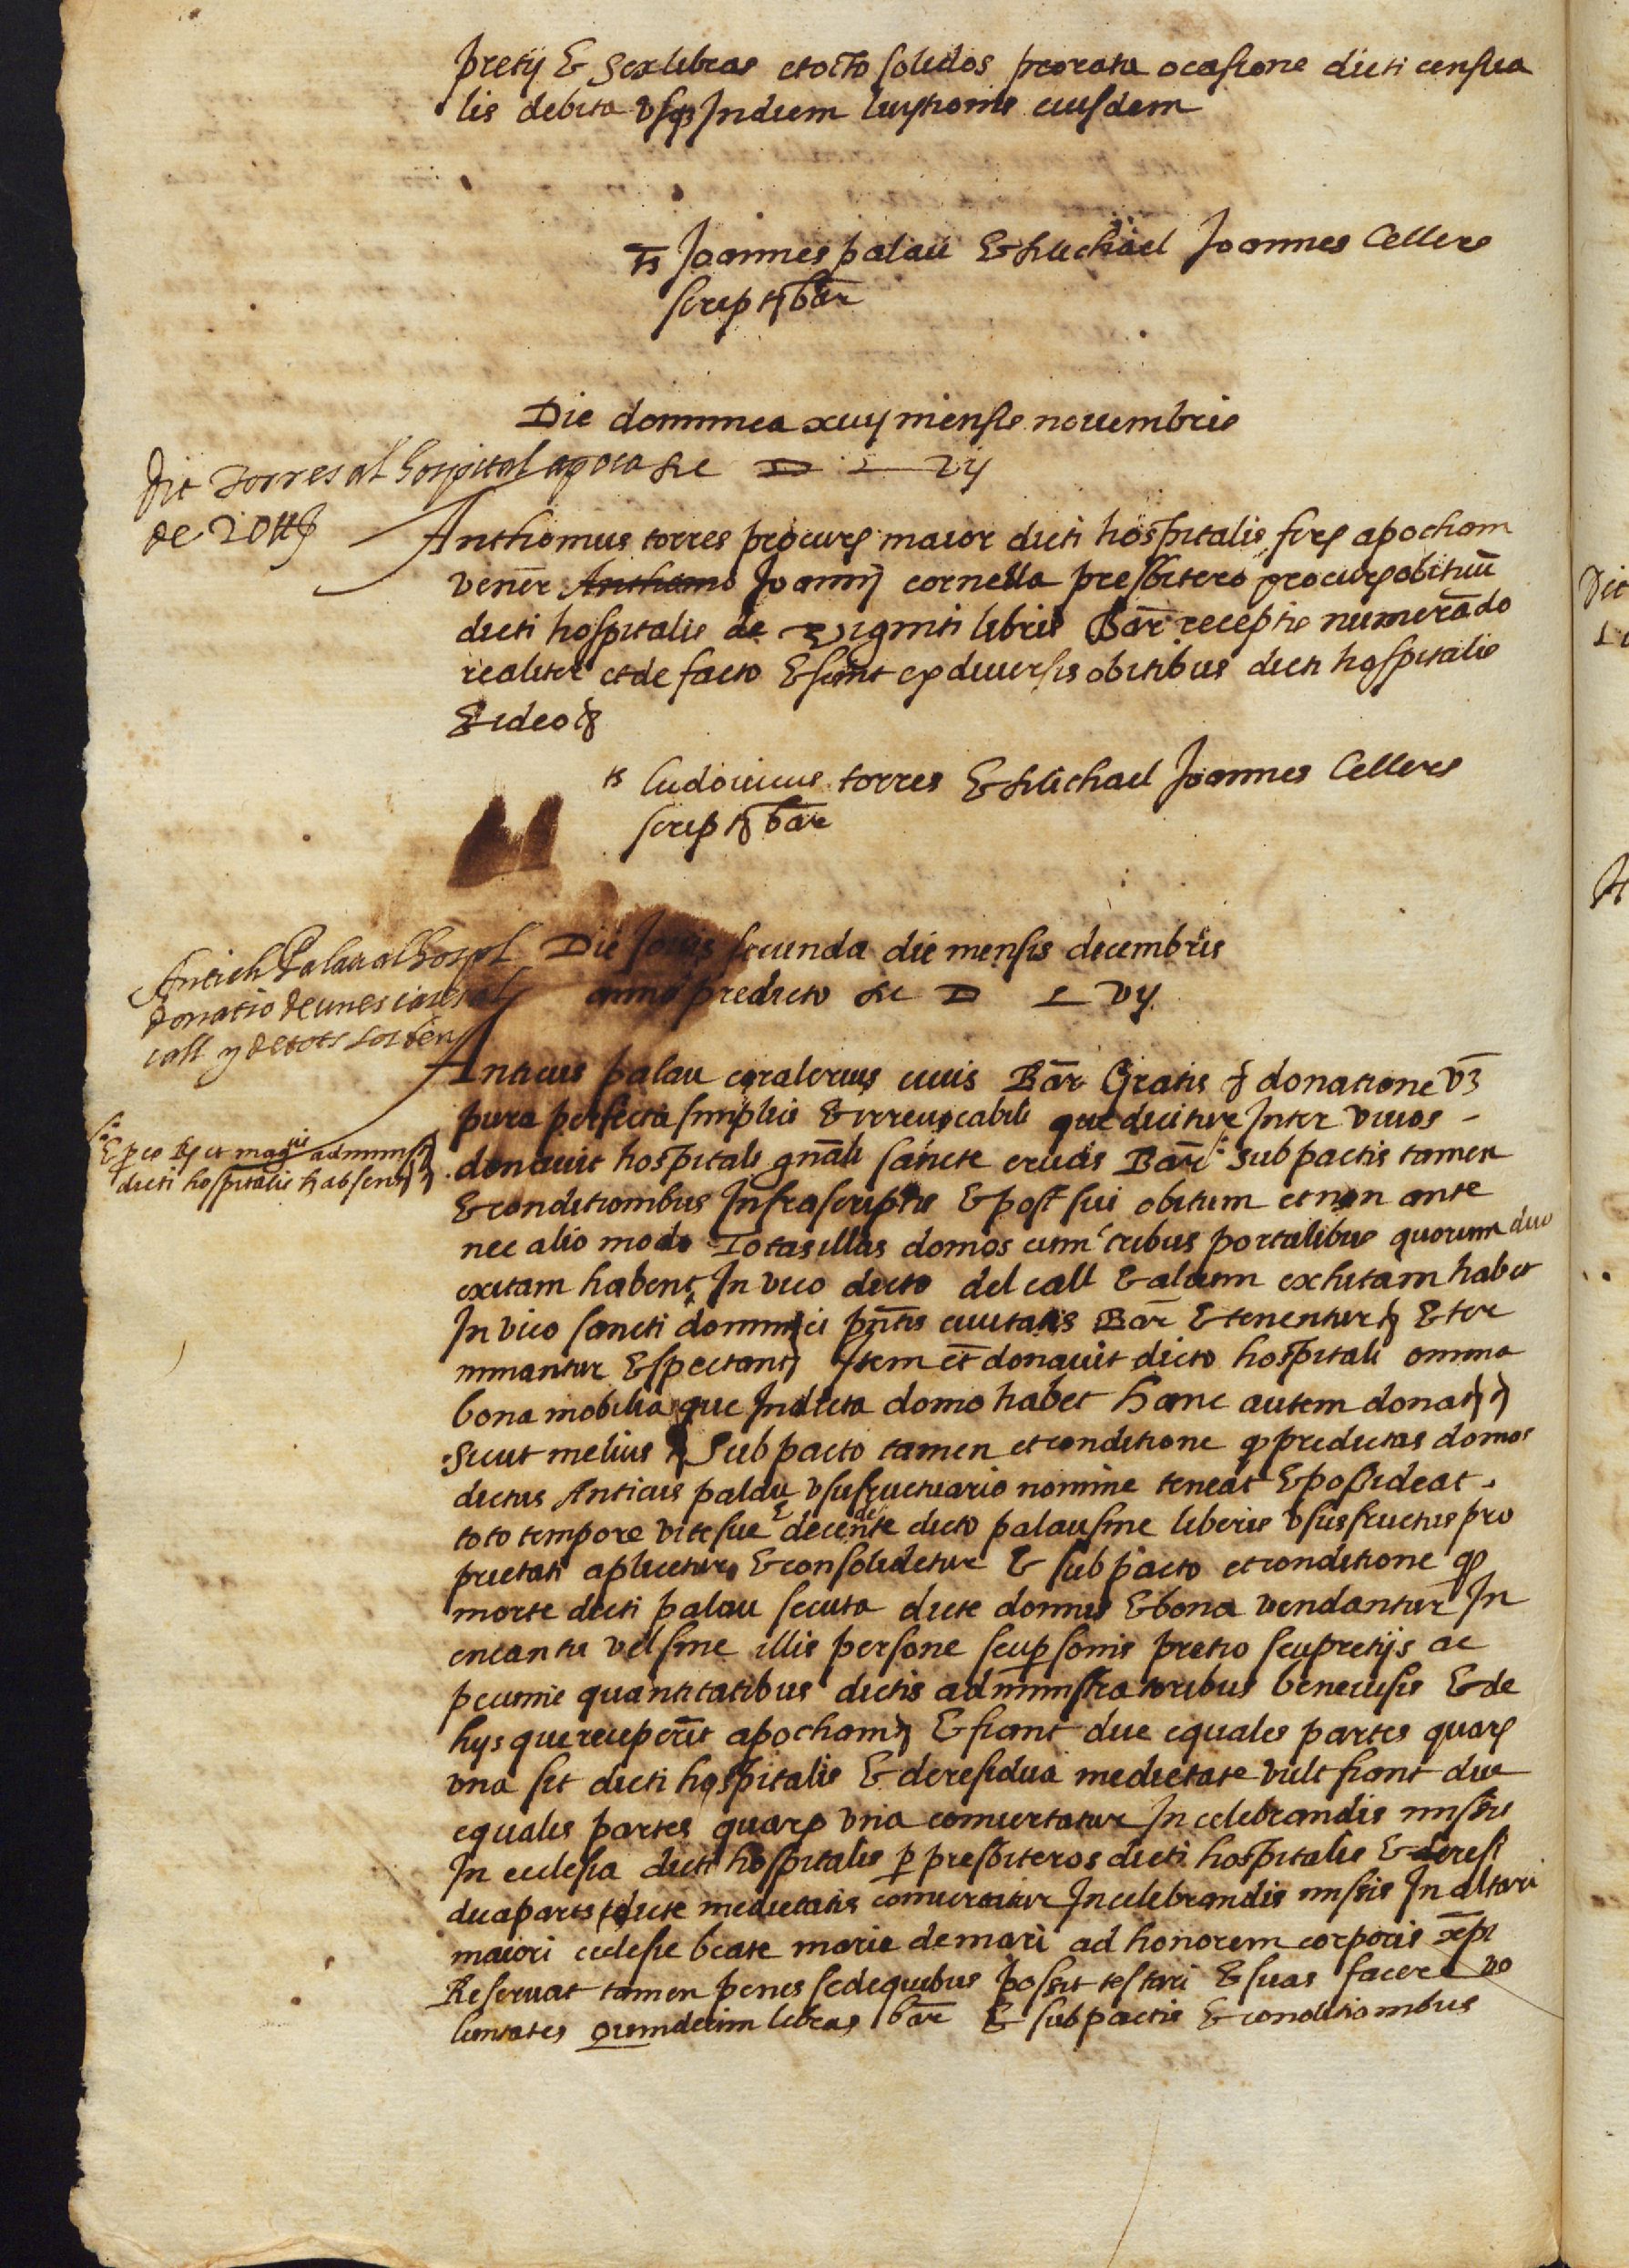 pretij & sex libras et octo solidos prorata ocasione dicti censua
lis debita usq3 In diem luytionis eiusdem
Ts Joannes palau & Michael Joannes Cellers
script3 bar̄
Die dominica xiiij mensis novembris
M D L vij
dit torres al hospital apoca
de 20 ll
Anthonius torres procur3 maior dicti hospitalis fir3 apocham
vener̄ Anthonio Joanni cornella presbitero procur3 obituū
dicti hospitalis de viginti libris Bar̄ receptis numerādo
realiter et de facto & sunt ex diversis obitibus dicti hospitalis
& ideo &
ts ludovicus torres & Michael Joannes Cellers
script3 bar̄
Die Jovis secunda die mensis decembris
anno predicto M D L vij
Antich Palau al hospl
donatio de unes cases al
call y de tots los bens
Anticus palau coralerius civis Bar̄ Gratis & donatione
pura perfecta simplici & irrevocabili que dicitur Inter vivos
& p eo dictis mag cis adminis
dicti hospitalis absen
donavit hospitali gnāli sancte crucis Bar̄ sub pactis tamen
& conditionibus Infrascriptis & post sui obitum et non ante
nec alio modo Totas illas domos cum tribus portalibus quorum duo
exitam habent In vico dicto del call & alium exhitam habet
In vico sancti dominici pn̄tis civitatis Bar̄ & tenentur & ter
minantur & spectant Item et̄ donavit dicto hospitali omnia
bona mobilia que In dicta domo habet Hanc autem donat
Sicut melius & Sub pacto tamen et conditione q predictas domos
dictus Anticus palau usufructuario nomine teneat & possideat
toto tempore vite sue & decende
nte dicto palau sine liberis ususfructus pro
prietati aplicetur & consolidetur & sub pacto et conditione q
morte dicti palau secuta dicte domus & bona vendantur In
encantu vel sine illis persone seu psonis pretio seu pretijs ac
pecunie quantitatibus dictis administratoribus benevisis & de
hijs que reciperīt apocham & fiant due equales partes quar3
una sit dicti hospitalis & de residua medietate vult fiant due
equales partes quar3 una convertatur In celebrandis missis
In ecclesia dicti hospitalis p presbiteros dicti hospitalis & de resi
dua parte dicte medietatis convertatur In celebrandis missis In altari
maiori ecclesie beate marie de mari ad honorem corporis xp̄i
Reservat tamen penes se de quibus possit testari & suas facere vo
luntates quindecim libras bar̄ & sub pactis & conditionibus